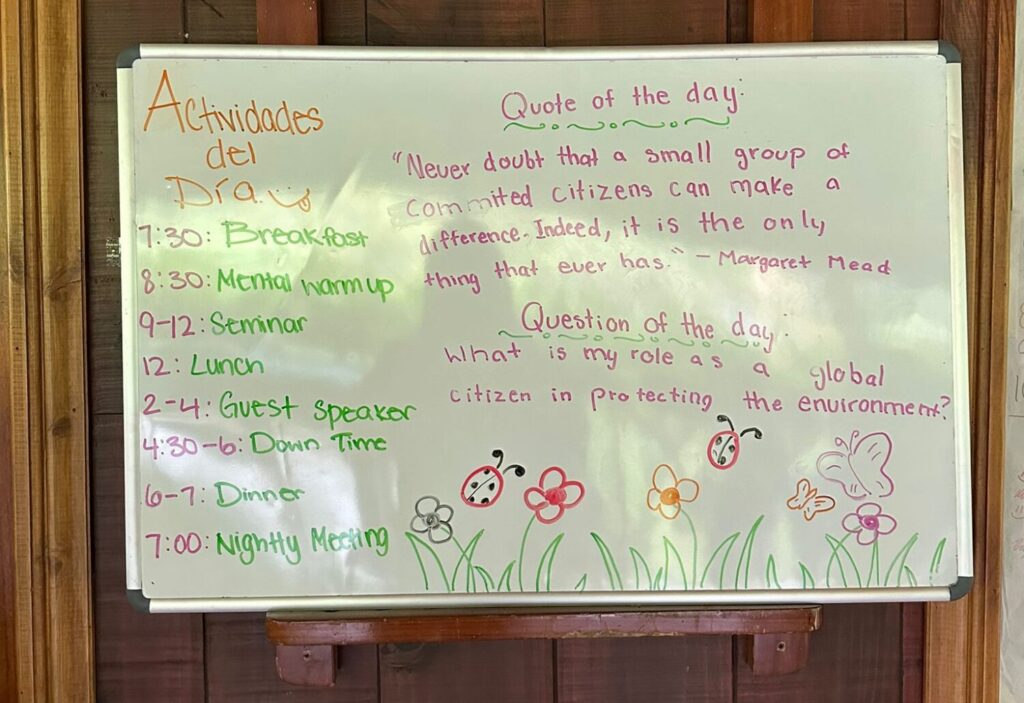 Actividades
del
Día
7:30: Breakfast
8:30: Mental warm up
9-12: Seminar
12: Lunch
2-4: Guest Speaker
4:30-6: Down Time
6-7: Dinner
7:00: Nightly Meeting
Quote of the day:
"Never doubt that a small group of
commited citizens can make a
difference. Indeed, it is the only
thing that ever has." - Margaret Mead
Question of the day:
What is my role as a global
citizen in protecting the environment?